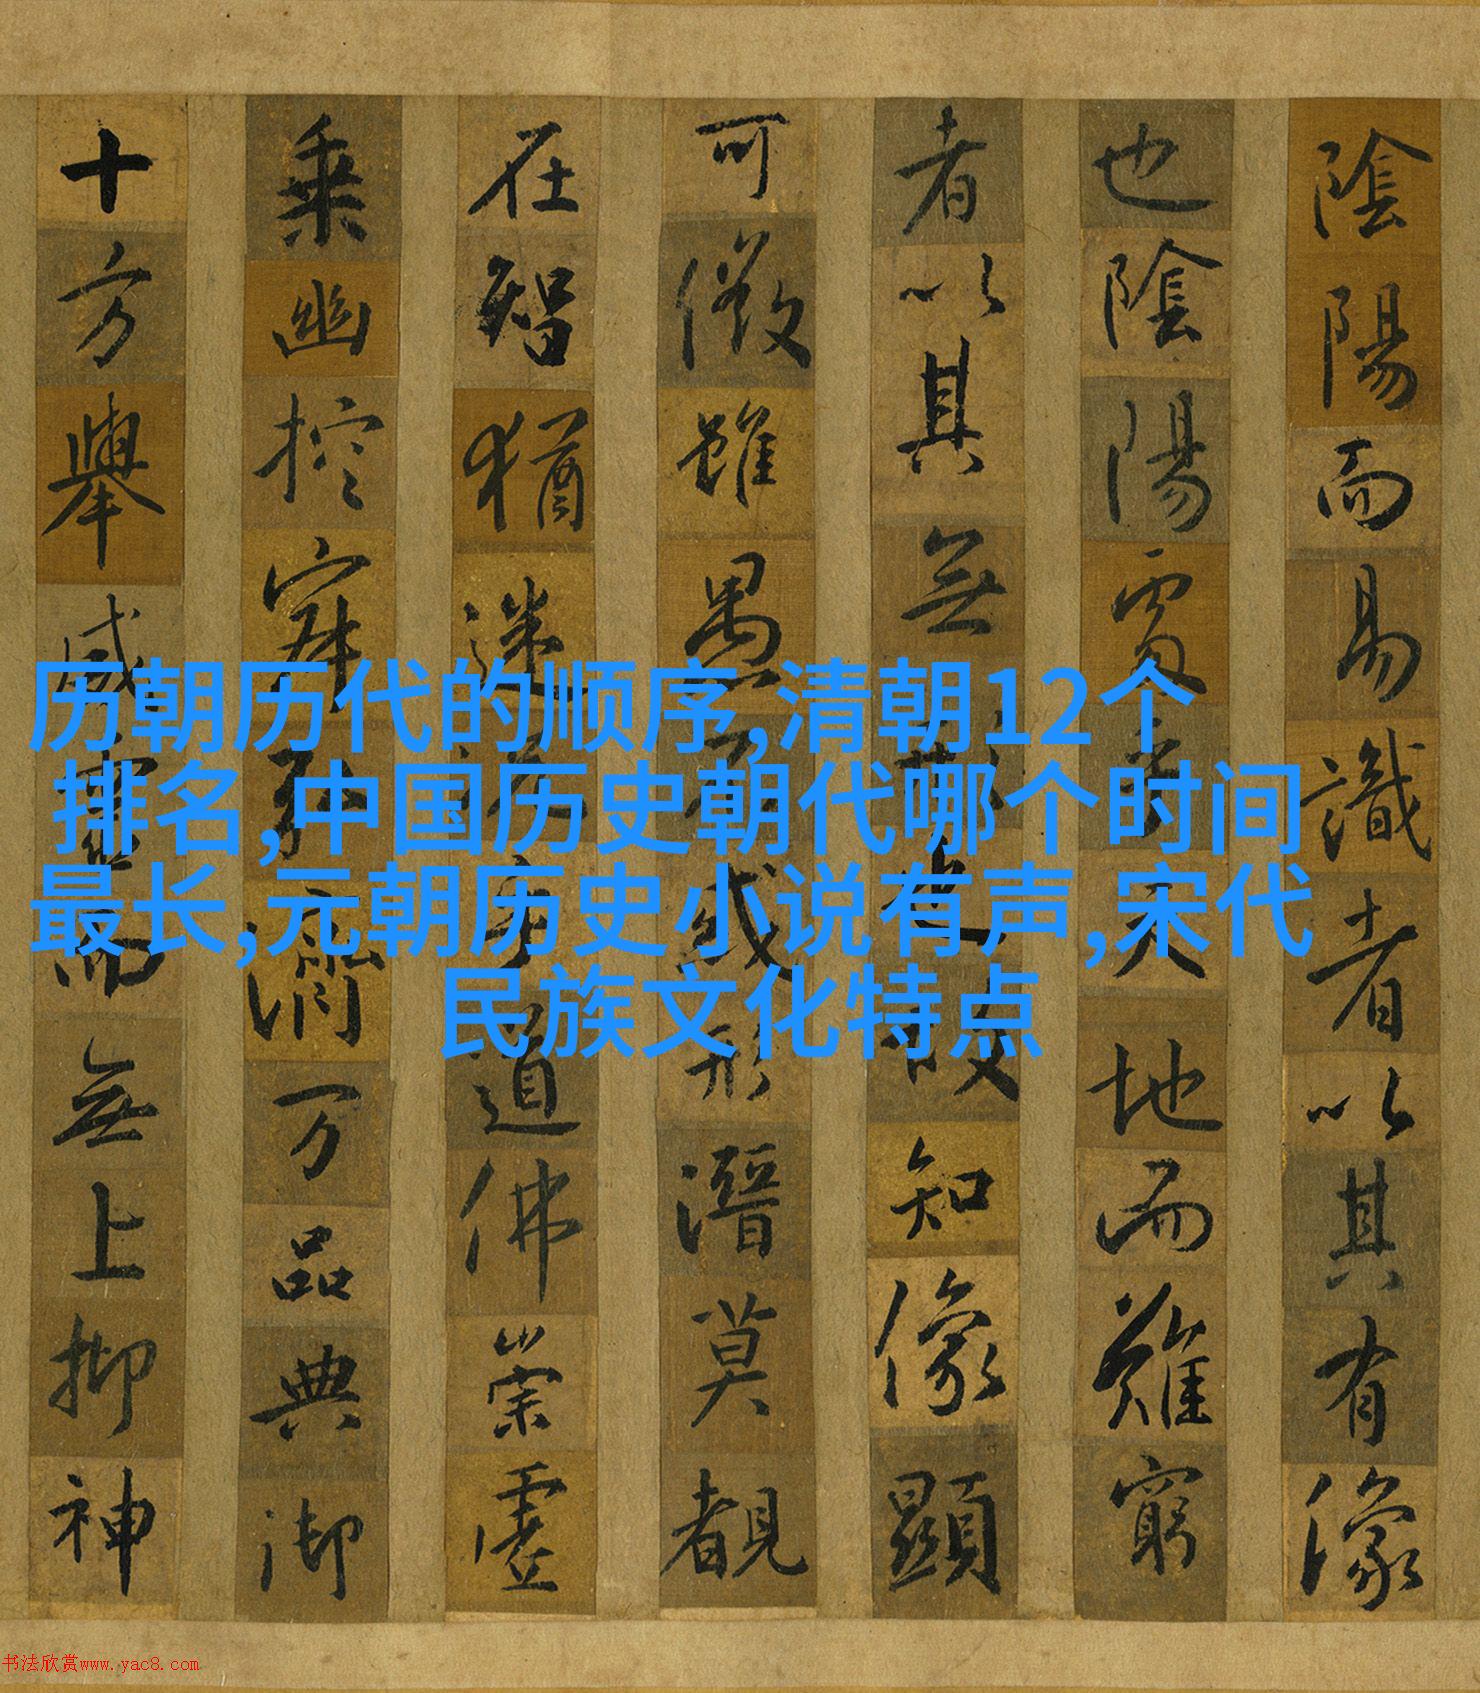 陰陽而易識者以其有像
也陰陽處乎天地而難窮
者以其無形也故知像顯
可徵雖愚不惑形潛莫覩
在智猶迷況乎道佛崇虛
乘幽控寂弘濟万品典御
十方舉威靈而無上抑神
历朝历代的顺序,清朝12个
排名,中国历史朝代哪个时间
最长,元朝历史小说有声,宋代
民族文化特点
书法欣赏www.yac8.com